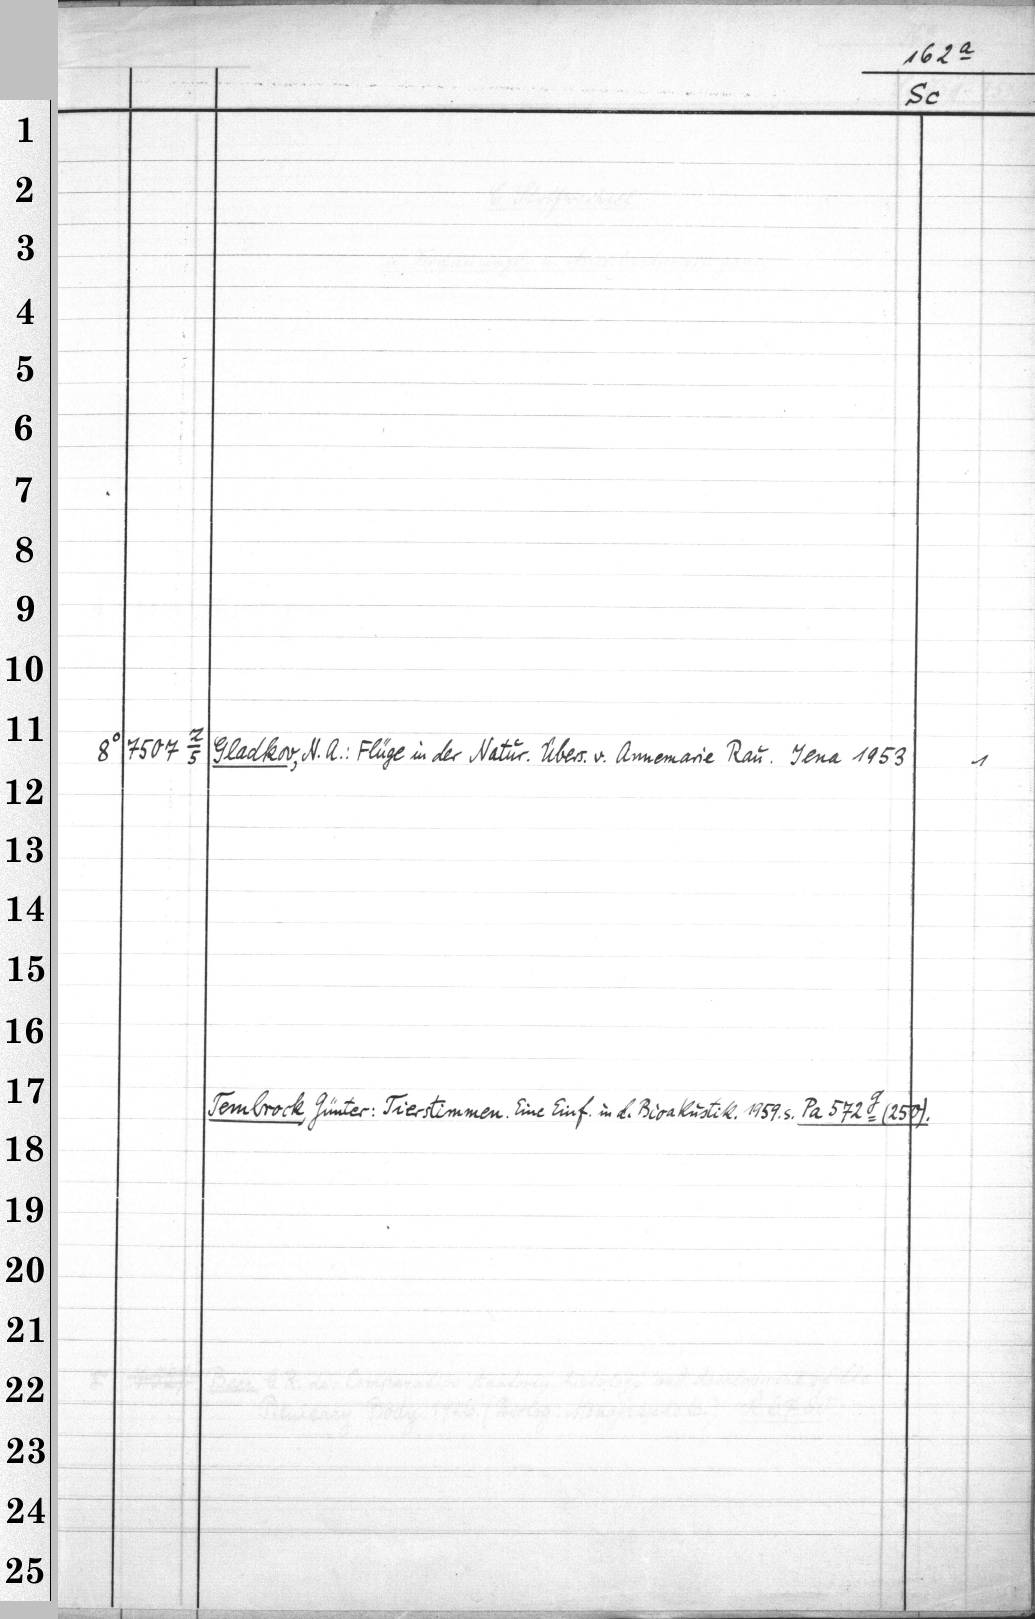 162 a
Sc
1
2
3
4
5
6
7
8
9
10
11
8° 7507 z/5 Gladkov, N. A.: Flüge in der Natur. Übers. v. Annemarie Rau. Jena 1953 1
12
13
14
15
16
17
Tembrock, Günter: Tierstimmen. Eine Einf. in d. Bioakustik. 1959. s. Pa 572 g (250).
18
19
20
21
22
23
24
25